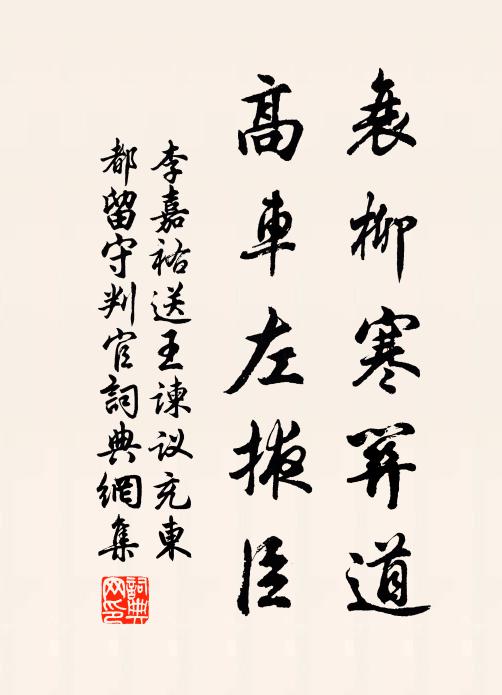 衰柳寒關道
高車左掖臣
李嘉祐送王諫议充東
都留守判官詞典網集
詞典网印